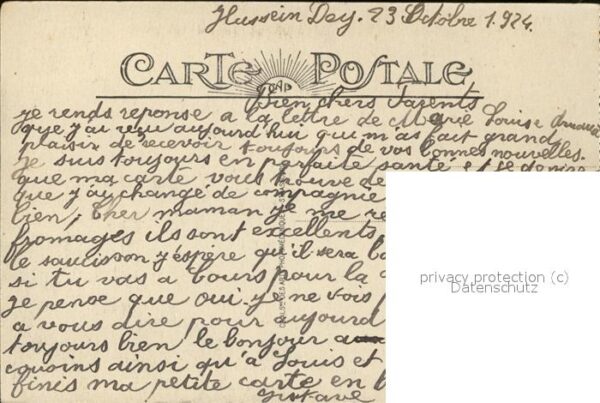 Hussein Dey. 23 Octobre 1924.
CARTE POSTALE
CAP
Bien chers Parents
je rends reponse a la lettre de Marie Louise
que j'ai reçu aujourd'hui qui m'as fait grand
plaisir de recevoir toujours de vos bonnes nouvelles.
je suis toujours en parfaite santé et je desire
que ma carte vous trouve de
que j'ay changé de compagnie
bien, Cher maman je me re
fromages ils sont excellents
le saucisson j'éspère qu'il sera bo
si tu vas a tours pour la
je pense que oui. je ne vois p
a vous dire pour aujourd
toujours bien le bonjour a
cousins ainsi qu'à Louis et
finis ma petite carte en b
Gustave
privacy protection (c)
Datenschutz